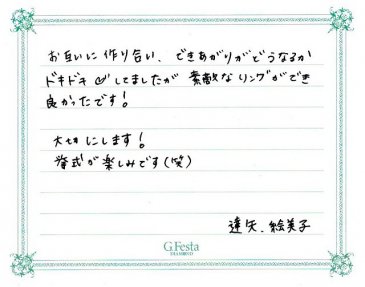 お互いに作り合い、できあがりがどうなるか
ドキドキしてましたが素敵なリングができ
良かったです!
大切にします!
挙式が楽しみです(笑)
達矢、絵美子
G.Festa
DIAMOND